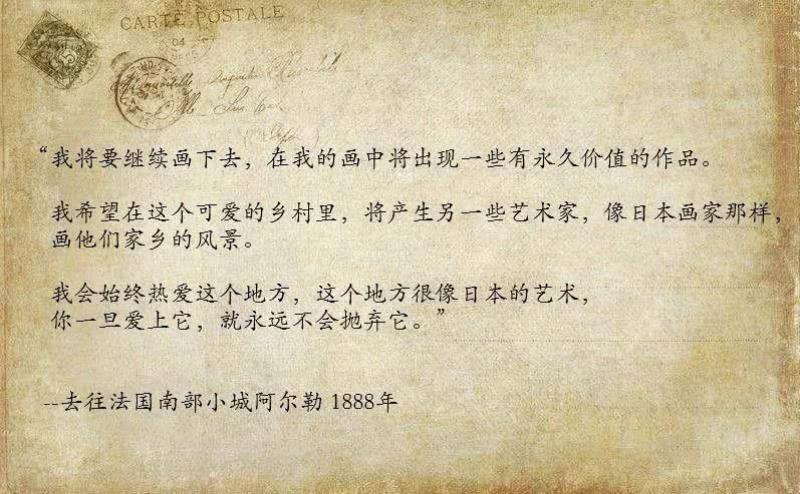 CARTE POSTALE
“我将要继续画下去，在我的画中将出现一些有永久价值的作品。
我希望在这个可爱的乡村里，将产生另一些艺术家，像日本画家那样，
画他们家乡的风景。
我会始终热爱这个地方，这个地方很像日本的艺术，
你一旦爱上它，就永远不会抛弃它。”
--去往法国南部小城阿尔勒 1888年